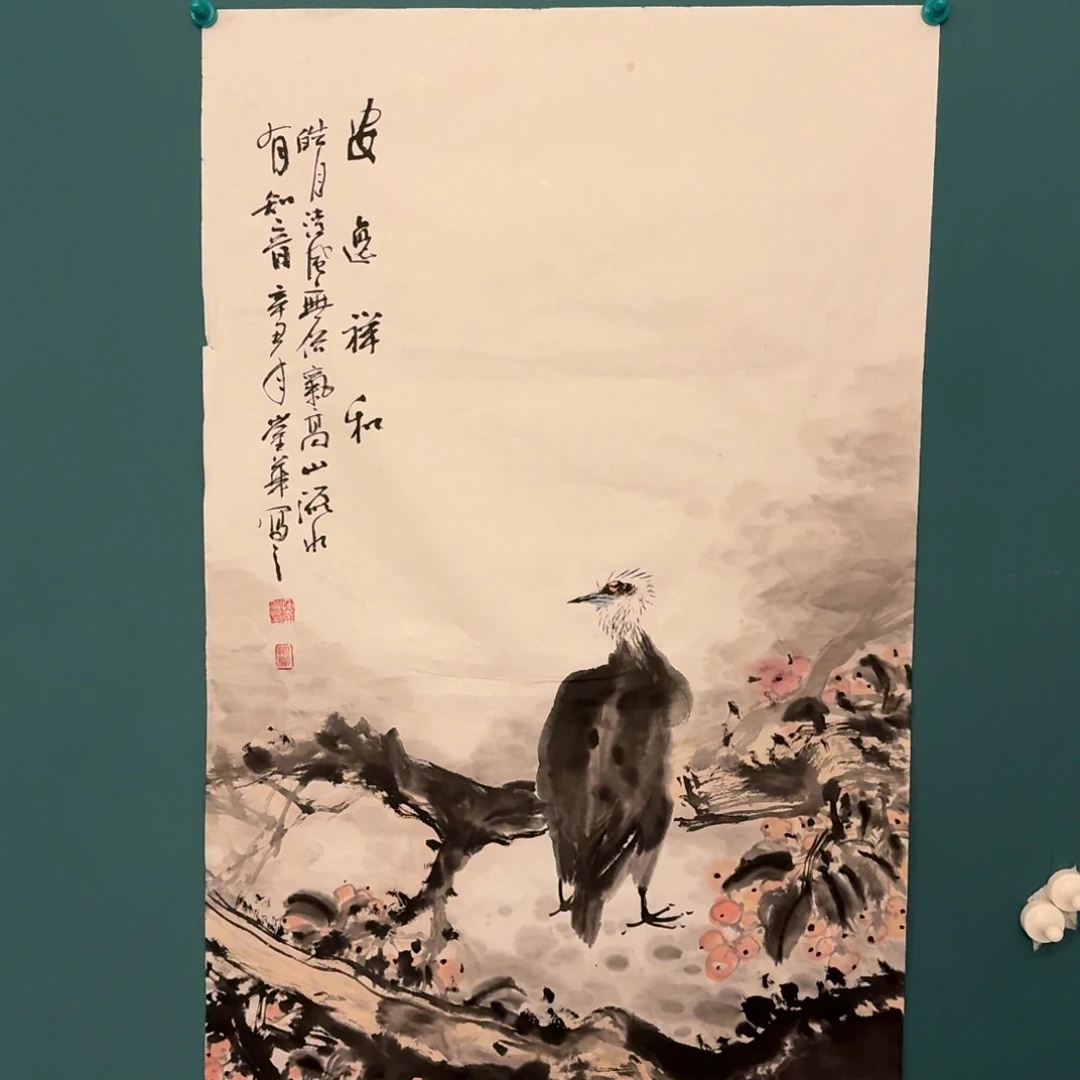 安逸祥和
皓月清風無俗氣高山流水
有知音辛丑年堂華寫之